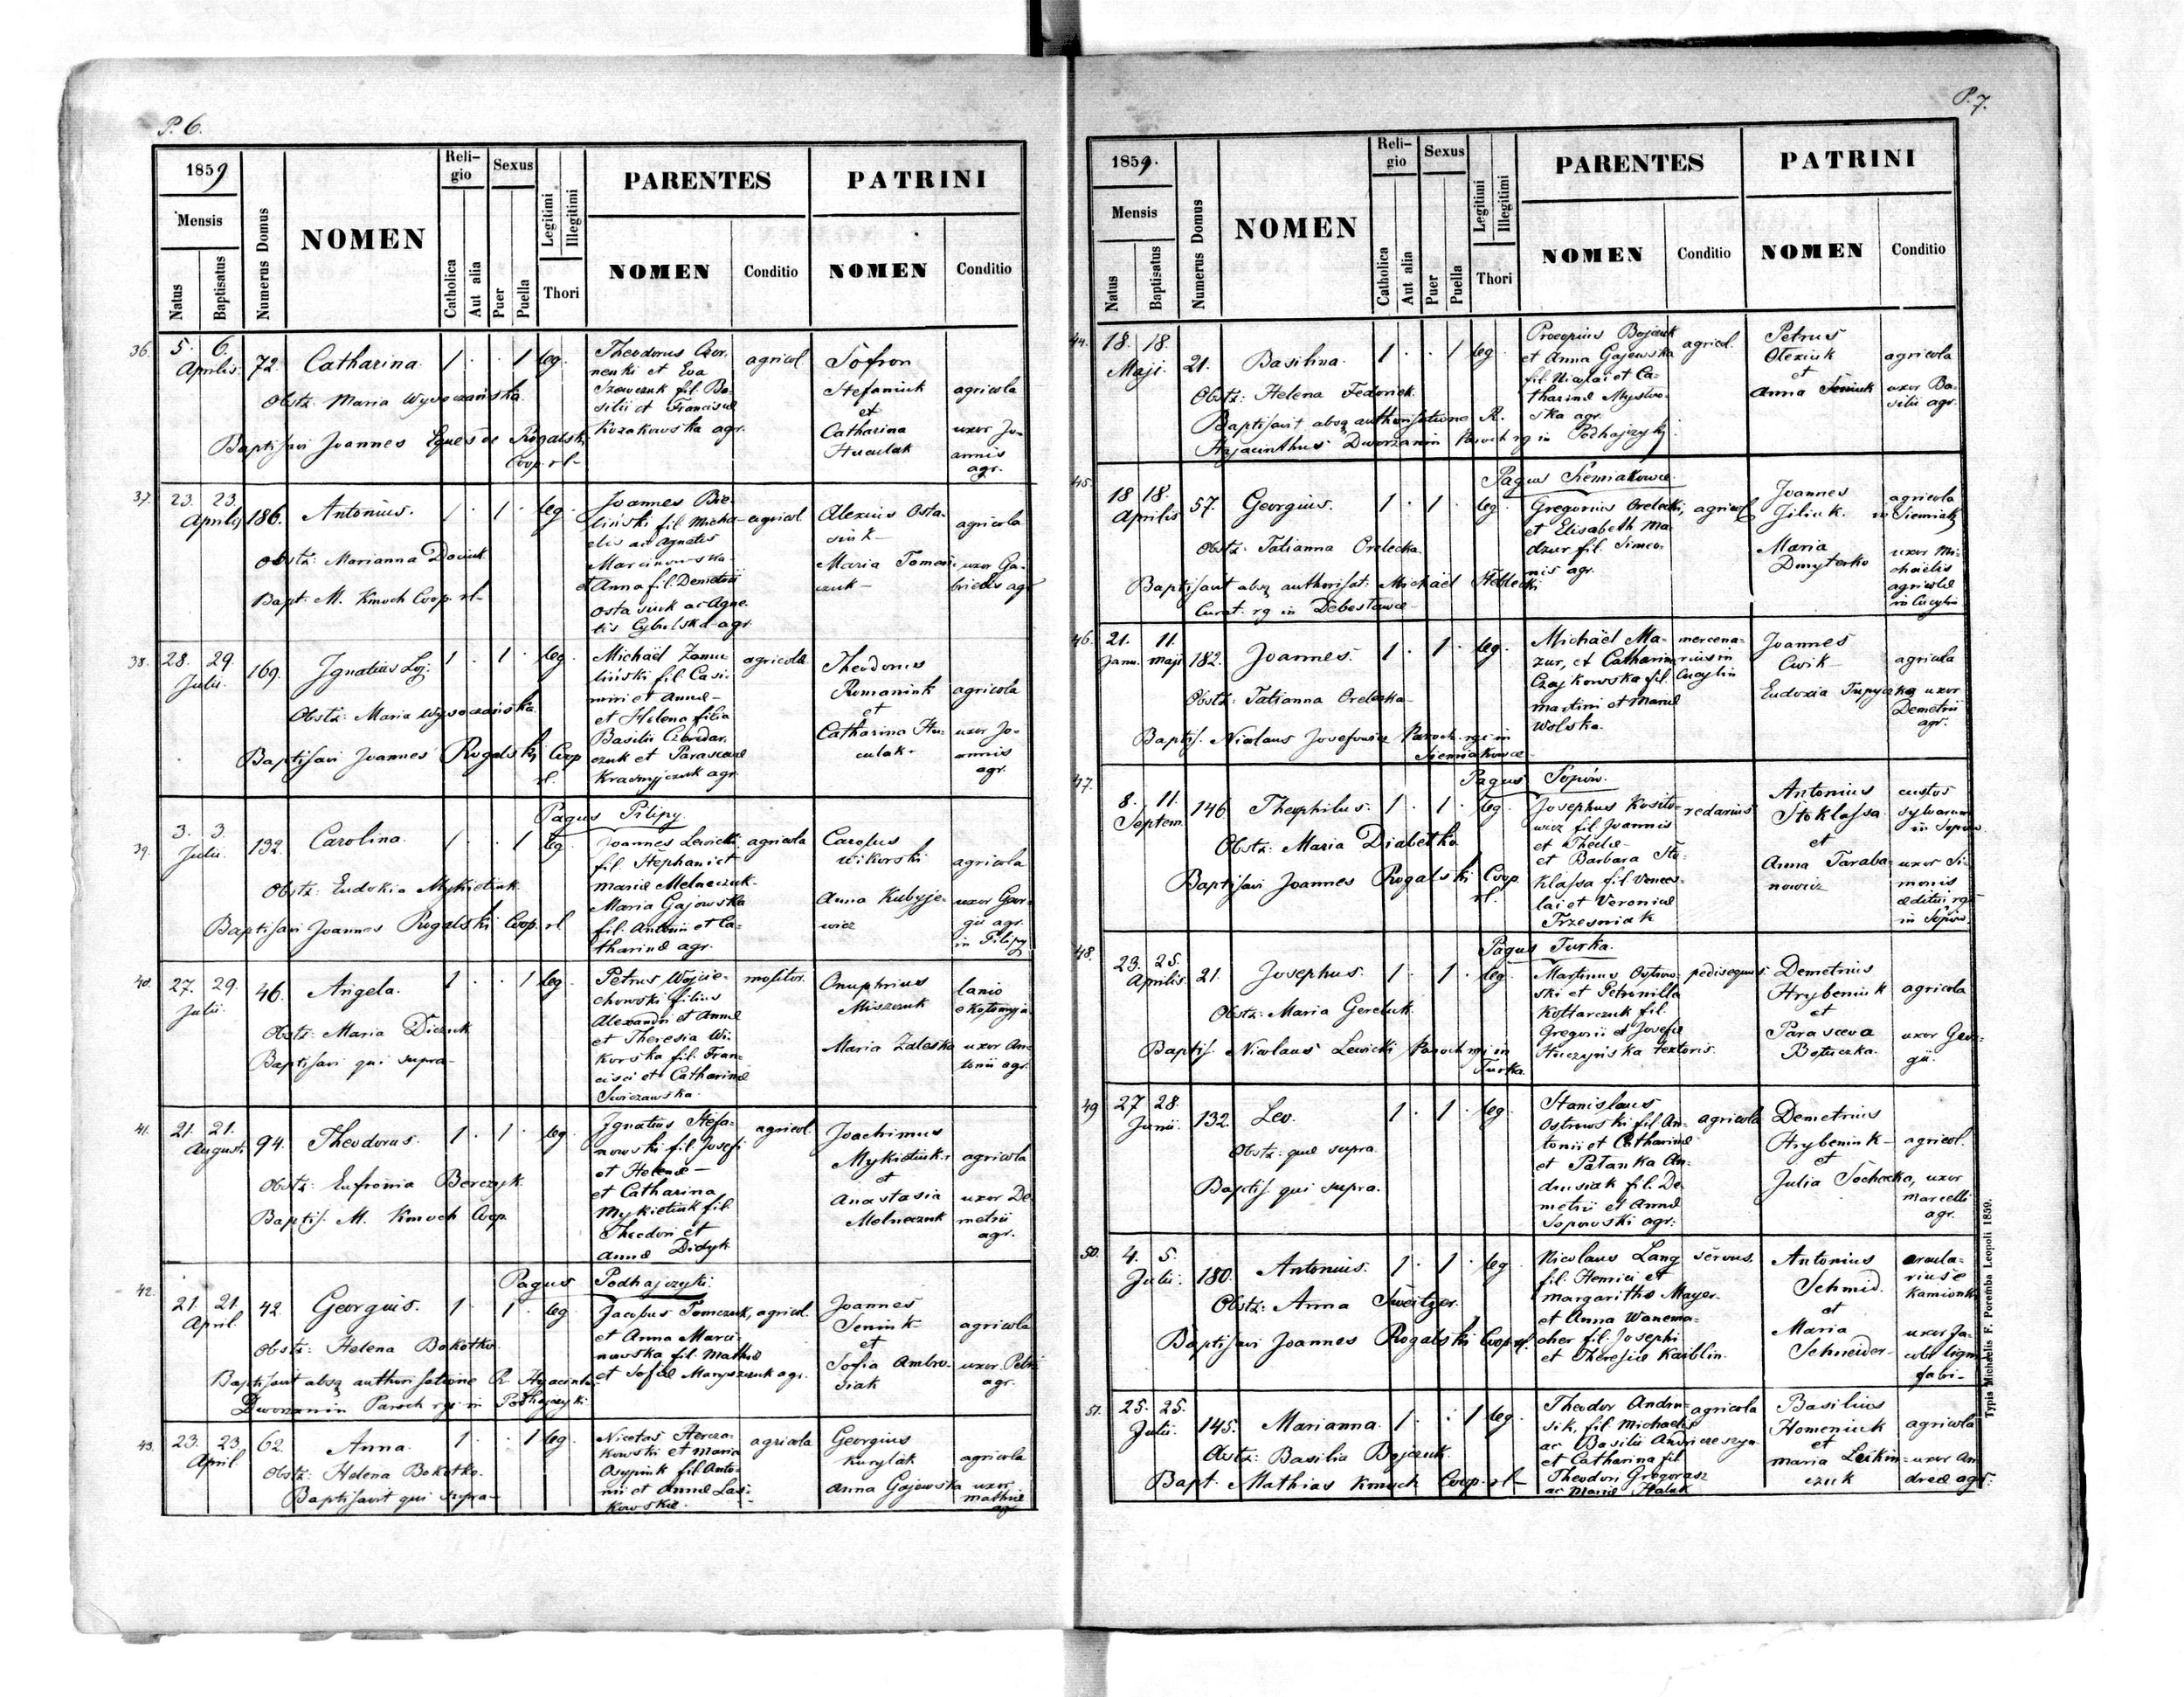 P. 6.
1859
Mensis
Natus
Baptisatus
Numerus Domus
NOMEN
Religio
Catholica
Aut alia
Sexus
Puer
Puella
Legitimi
Illegitimi
Thori
PARENTES
NOMEN
Conditio
PATRINI
NOMEN
Conditio
36. 5. 6. Aprilis 72. Catharina. 1 . . 1 leg.
Obstz: Maria Wysoczańska
Baptisavi Joannes Eques de Rogalski
Coop. rl-
Theodorus Czor-
nenki et Eva
Szewczuk fil. Ba-
silii et Franciscæ
Kozakowska agr.
agricol.
Sofron
Stefaniuk
et
Catharina
Huculak
agricola
uxor Jo-
annis
agr.
37. 23. 23. Aprilis 186. Antonius. 1 . 1 . leg.
Obstz: Marianna
Bapt. M. Kmoch Coop. rl-
Joannes Bie-
liński fil Micha-
elis ac Agnetis
Marcinowska
et Anna fil Demetrii
Ostasiuk ac Agne-
tis Cybulska agr.
agricol.
Alexius Osta-
siuk
Maria Toman-
czuk
agricola
uxor Ga-
brielis agr
38. 28. 29. Julii. 169. Ignatius Loj: 1 . 1 . leg.
Obstz: Maria Wysoczańska.
Baptisavi Joannes Rogalski Coop
rl.
Michaël Zamu-
liński fil. Casi-
miri et Annæ
et Helena filia
Basilii
czuk et Parascevæ
agr
agricola
Theodorus
Romaniuk
et
Catharina Hu-
culak
agricola
uxor Jo-
annis
agr.
Pagus Pilipy.
39. 3. 3. Julii. 132. Carolina. 1 . . 1 leg.
Obstz: Eudokia Mykietiuk
Baptisavi Joannes Rogalski Coop. rl
Joannes Lewicki
fil. Stephani et
Mariæ Melneczuk
Maria Gajowska
fil. Antonii et Ca-
tharinæ agr.
agricola
Carolus
Wikorski
Anna Kubyje-
wicz
agricola
uxor Geor-
gii agr.
in Pilipy
40. 27. 29. Julii. 46. Angela. 1 . . 1 leg.
Obstz: Maria Diczuk
Baptisavi qui supra-
Petrus Wojcie-
chowski filius
Alexandri et Annæ
et Theresia Wi-
korska fil. Fran-
cisci et Catharinæ
molitor.
Onuphrius
Miszczuk
Maria Zaleska
lanio
e Kołomyja
uxor An-
tonii agr.
41. 21. 21. Augusti 94. Theodorus. 1 . 1 . leg.
Obstz: Eufronia Berczyk
Baptis. M. Kmoch Coop.
Ignatius Stefa-
nowski fil. Josefi
et Helenæ
et Catharina
Mykietiuk fil.
Theodori et
Annæ Didyk.
agricol.
Joachimus
Mykietiuk
et
Anastasia
Melneczuk
agricola
uxor De-
metrii
agr.
Pagus Podhajczyki.
42. 21. 21. April. 42. Georgius. 1 . 1 . leg.
Obstz: Helena Bokotko
Baptisavit absq authorisatione R. Hyacinthus
Dworzanin Paroch rg in Podhajczyki
Jacobus Tomczuk,
et Anna Marci-
nowska fil. Mathiæ
et Sofiæ Maryszczuk agr.
agricol.
Joannes
Seniuk
et
Sofia Ambro-
siak
agricola
uxor. Petri
agr.
43. 23. 23. April. 62. Anna. 1 . . 1 leg.
Obstz: Helena Bokotko.
Baptisavit qui supra-
Nicetas Hercza-
kowski et Maria
Osypiuk fil Anto-
nii et Annæ Las-
kowskæ.
agricola
Georgius
Kurylak
Anna Gajewska
agricola
uxor
Mathiæ
agr
P. 7.
1859.
Mensis
Natus
Baptisatus
Numerus Domus
NOMEN
Religio
Catholica
Aut alia
Sexus
Puer
Puella
Legitimi
Illegitimi
Thori
PARENTES
NOMEN
Conditio
PATRINI
NOMEN
Conditio
44. 18. 18. Maji. 21. Basilina. 1 . . 1 leg.
Obstz: Helena Fedoriek.
Baptisavit absq authorisatione R.
Hyacinthus Dworzanin Paroch rg in Podhajzyki
Procopius Bojczuk
et Anna Gajewska
fil. Nicolai et Ca-
tharinæ Myslwo-
ska agr.
agricol.
Petrus
Olexiuk
et
Anna Seniuk
agricola
uxor Ba-
silii agr.
Pagus Siemiakowce.
45. 18 18. Aprilis 57. Georgius. 1 . 1 . leg.
Obstz: Tatianna Orelecka.
Baptisavit absq authorisat: Michaël
Curat. rg in Debesławce
Gregorius Orelecki,
et Elisabeth Ma-
dzur fil. Simeo-
nis agr.
agricol
Joannes
Jiliuk.
Maria
Dmyterko
agricola
in Siemiak
uxor Mi-
chaelis
agricolæ
in Cucylin
46. 21. Janu. 11. Maji 182. Joannes. 1 . 1 . leg.
Obstz: Tatianna Orelecka
Baptis. Nicolaus Josefowicz Paroch. rg in
Siemiakowce
Michaël Ma-
zur, et Catharina
Czajkowska fil.
Martini et Mariæ
Wolska.
mercena-
rius in
Cucylin
Joannes
Cwik
Eudoxia Tupyczka
agricola
uxor
Demetrii
agr.
Pagus Sopów.
47. 8. 11. Septem. 146 Theophilus. 1 . 1 . leg.
Obstz: Maria Diabetko
Baptisavi Joannes Rogalski Coop
rl.
Josephus Kosito-
wicz fil. Joannis
et Theclæ
et Barbara Sto-
klassa fil Vences-
lai et Veronicæ
Trzesniak
redarius
Antonius
Stoklassa
et
Anna Taraba-
nowicz
custos
sylvarum
in Sopów
uxor Si-
monis
æditui rg
in Sopów
Pagus Turka.
48. 23. 25. Aprilis. 21. Josephus. 1 . 1 . leg.
Obstz: Maria Gereluk.
Baptis. Nicolaus Lewicki Paroch rg in
Turka.
Martinus Ostrow-
ski et Petronilla
Kotlarczuk fil.
Gregorii et Josefæ
Huczyńska textoris.
pedisequus.
Demetrius
Hrybeniuk
et
Parasceva
Botuczka.
agricola
uxor Geor-
gii.
49 27 28. Junii. 132. Leo. 1 . 1 . leg.
Obstz: quæ supra
Baptis. qui supra.
Stanislaus
Ostrowski fil An-
tonii et Catharinæ
et Pałanka An-
drusiak fil. De-
metrii et Annæ
Sopowski agr:
agricola
Demetrius
Hrybeniuk
et
Julia Sochacka,
agricol.
uxor
Marcelli
agr.
50. 4. 5. Julii. 180. Antonius. 1 . 1 . leg
Obstz: Anna Sweitzer.
Baptisavi Joannes Rogalski Coop rl.
Nicolaus Lang
fil. Henrici et
Margaritha Mayer
et Anna Wanema-
cher fil. Josephi
et Theresiæ Kaiblin.
servus.
Antonius
Schmid.
et
Maria
Schneider
arcula-
rius e
Kamionki
uxor Ja-
cobi lign
fabri-
51. 25. 25. Julii. 145. Marianna. 1 . . 1 leg.
Obstz: Basilia Bojczuk.
Bapt. Mathias Kmoch Coop. rl-
Theodor Andru-
sik, fil Michaelis
ac Basilii
et Catharina fil
Theodori Gregorasz
ac Mariæ Haluk
agricola
Basilius
Homeniuk
et
Maria Leikin-
czuk
agricola
uxor An-
dreæ agr.
Typis Michaelis F. Poremba Leopoli 1859.